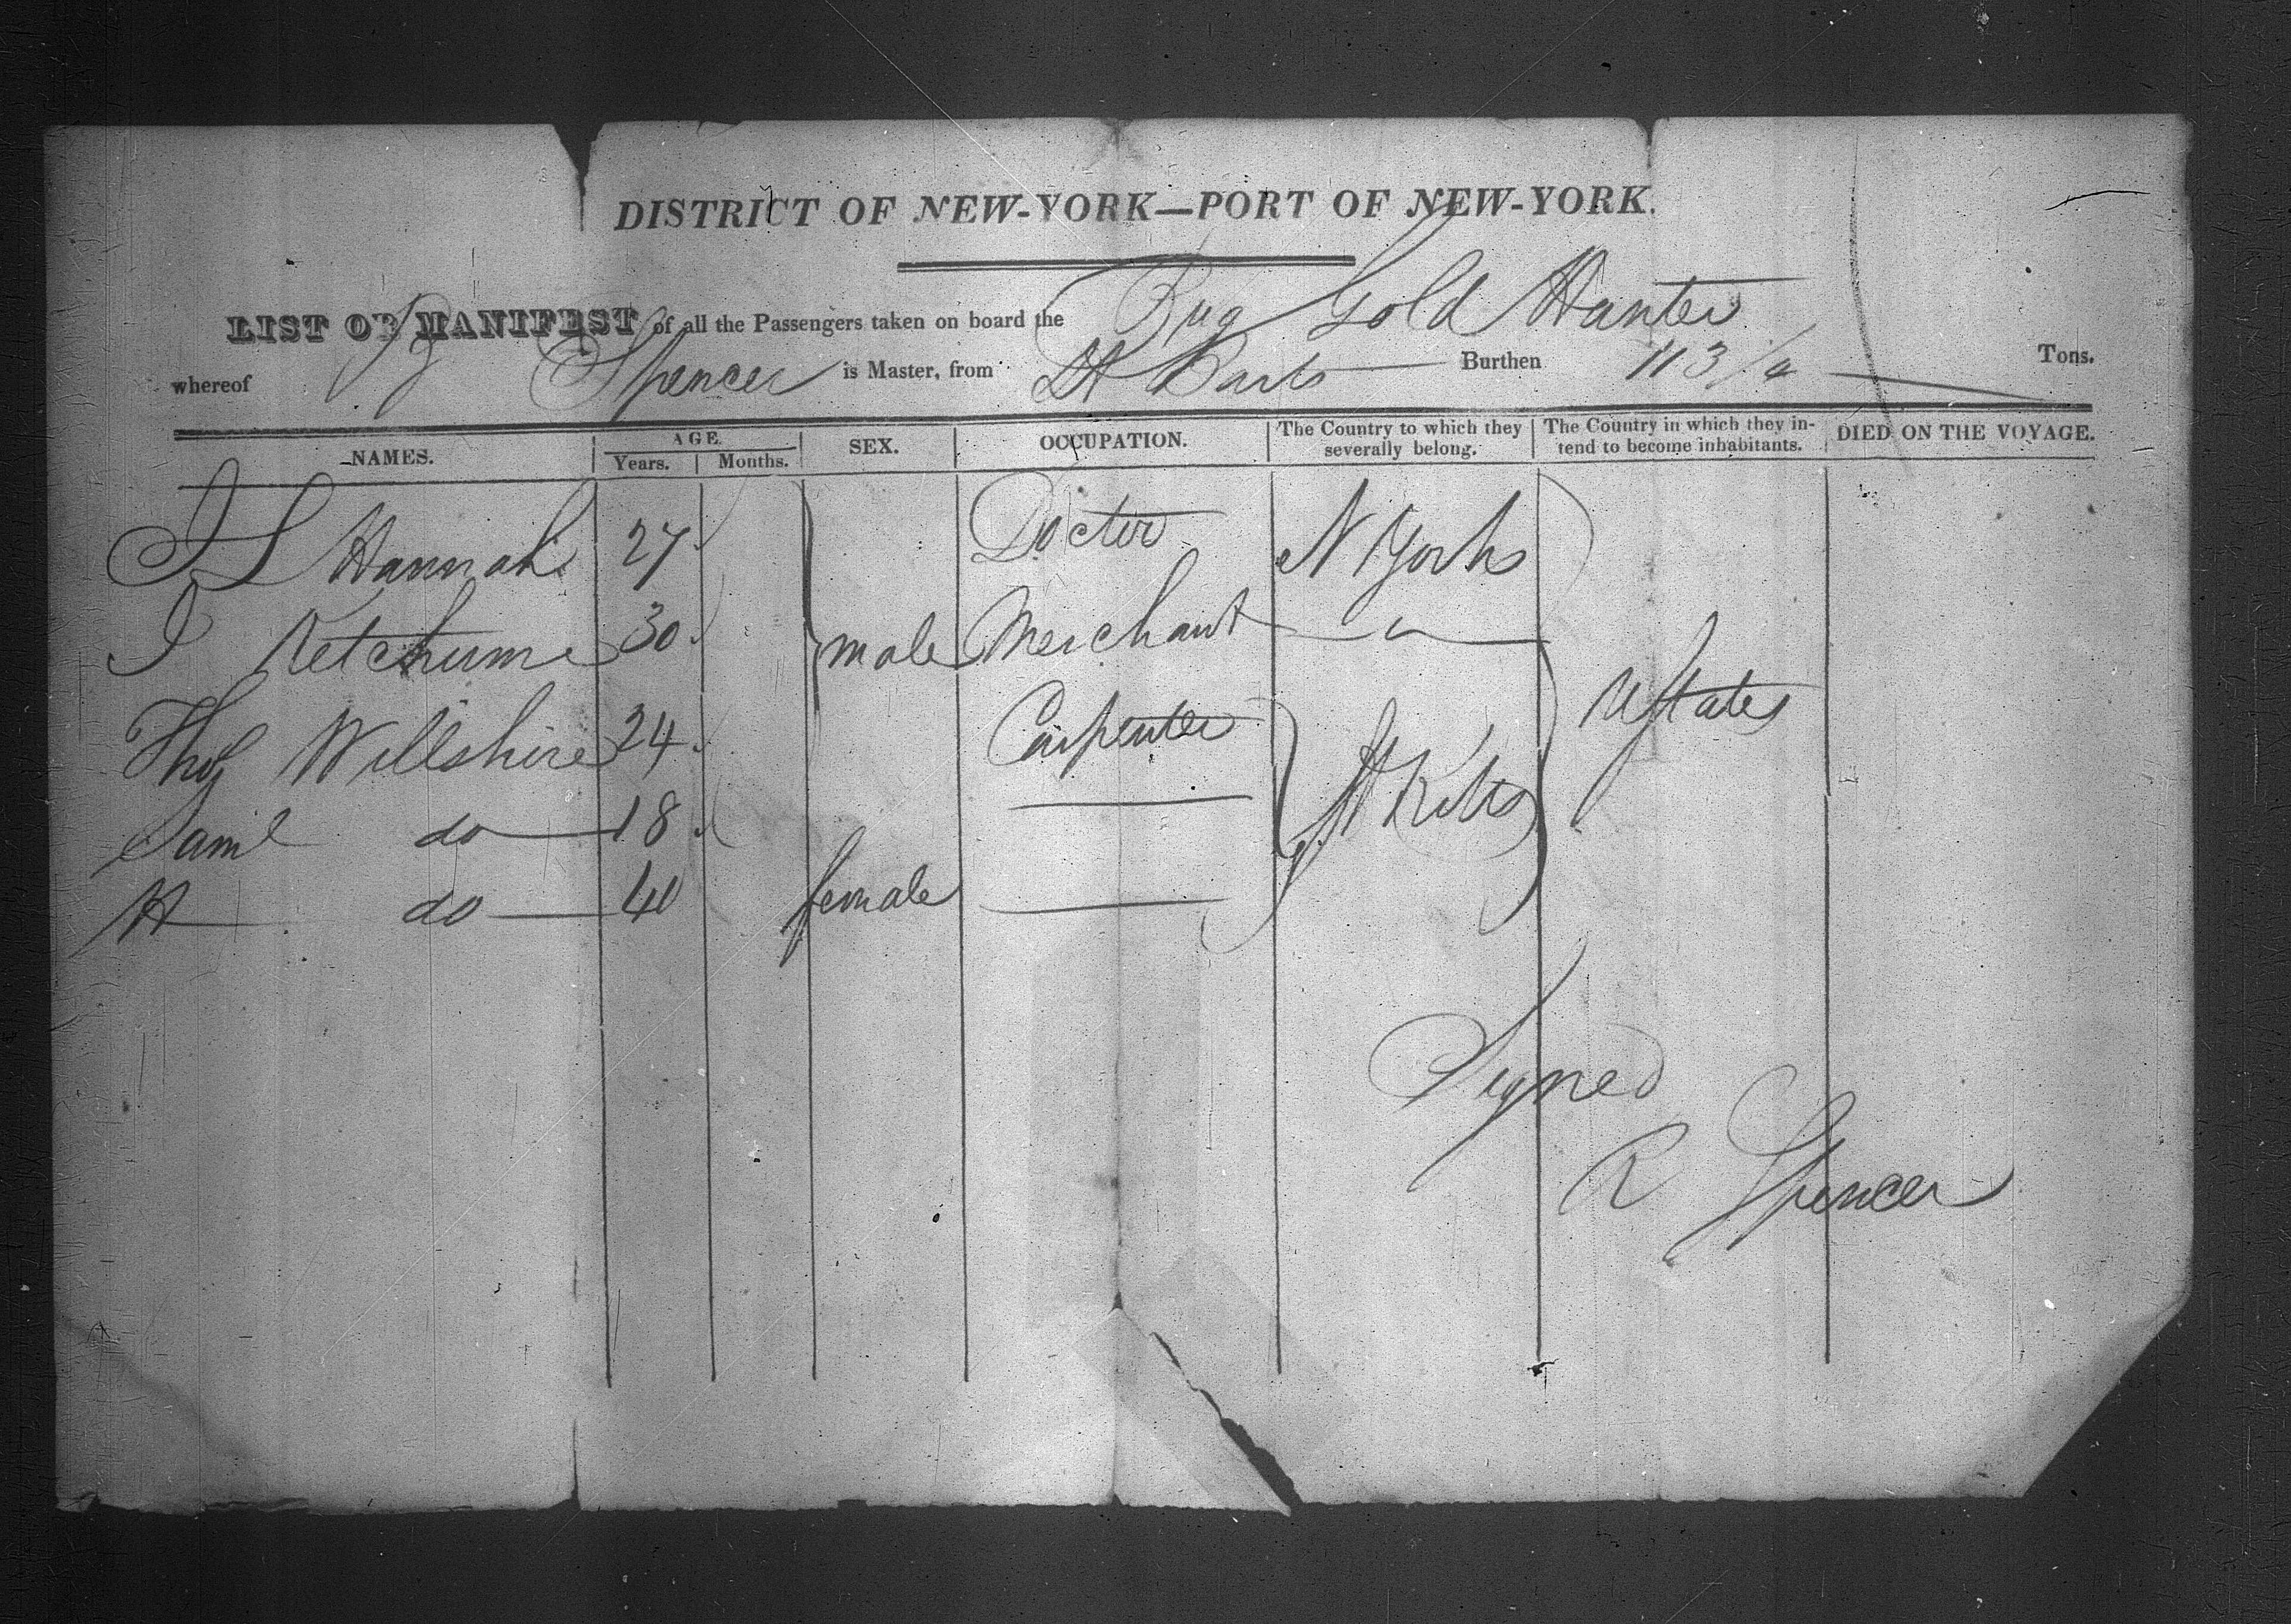 DISTRICT OF NEW-YORK—PORT OF NEW-YORK.
LIST OR MANIFEST of all the Passengers taken on board the Brig Gold Hunter
whereof R Spencer is Master, from St Barts Burthen 113 Tons.
NAMES. AGE. Years. Months. SEX. OCCUPATION. The Country to which they severally belong. The Country in which they intend to become inhabitants. DIED ON THE VOYAGE.
I S Hannah 27 Docter N York
I Ketchum 30 male Merchant "
Thos Willshire 24 Carpenter St Kitts U States
Saml do 18
H do 40 female
Signed
R Spencer